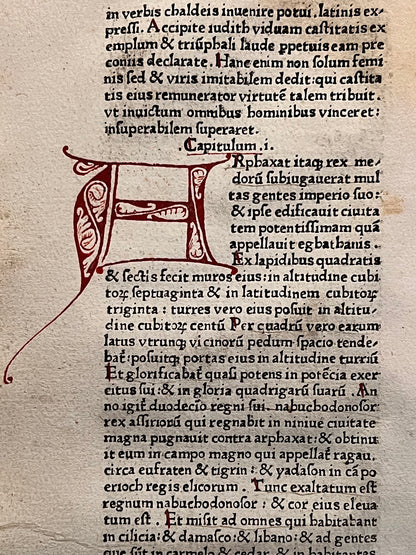 in verbis chaldeis inuenire potui, latinis ex⸗
pressi. Accipite iudith viduam castitatis ex
emplum & triūphali laude ꝑpetuis eam pre
coniis declarate. Hanc enim non solum femi
nis sed & viris imitabilem dedit: qui castita
tis eius remunerator virtutē talem tribuit.
vt inuictum omnibus hominibus vinceret:
insuperabilem superaret.
.Capitulum.i.
ARphaxat itaqꝫ rex me⸗
dorū subiugauerat mul
tas gentes imperio suo:
& ipse edificauit ciuita
tem potentissimam quā
appellauit egbathanis.
Ex lapidibus quadratis
& sectis fecit muros eius: in altitudine cubi
toꝝ septuaginta & in latitudinem cubitoꝝ
triginta : turres vero eius posuit in altitu⸗
dine cubitoꝝ centū Per quadrū vero earum
latus vtrunqꝫ vicinorū pedum spacio tende⸗
bat̄: posuitqꝫ portas eius in altitudine turriū
Et glorificabat̄ quasi potens in potēcia exer
citus sui: & in gloria quadrigarū suarū . An
no igit̄ duodecio regni sui. nabuchodonosor
rex assiriorū qui regnabit in niniue ciuitate
magna pugnauit contra arphaxat: & obtinu
it eum in campo magno qui appellat̄ ragau.
circa eufraten & tigrin : & yadason in cā po
erioch regis elicorum . Tunc exaltatum est
regnum nabuchodonosor : & cor eius eleua
tum est . Et misit ad omnes qui babitabant
in cilicia: & damasco: & libano: & ad gentes
que sūt in carmelo & cedar & in babitantes